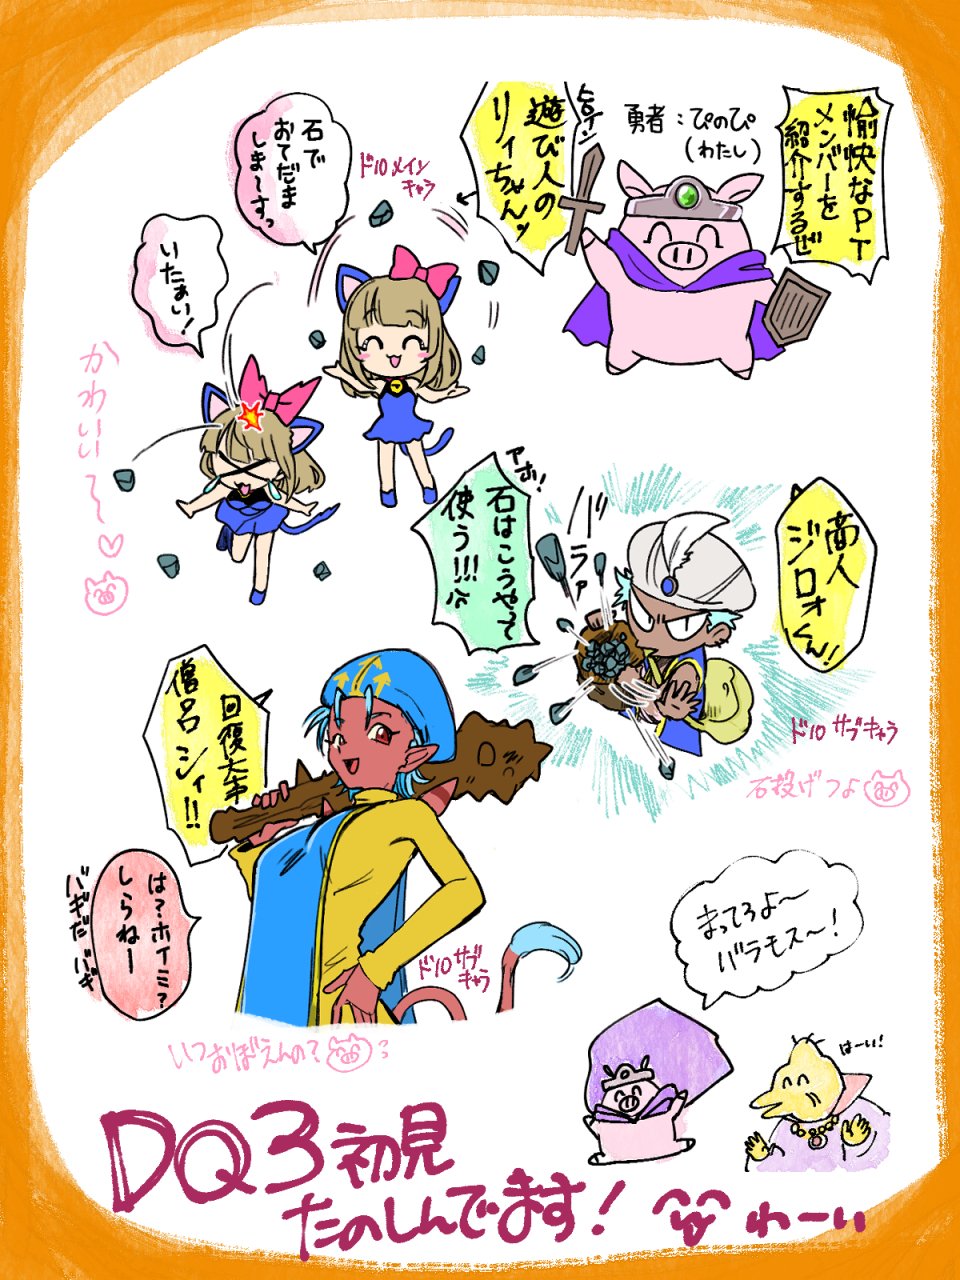 愉快なPT
メンバーを
紹介するぜ
勇者：ぴのぴ
(わたし)
遊び人の
リィちゃんッ
ド10メイン
キャラ
石で
おてだま
しま〜すっ
いたぁい！
かわいい〜♡
商人
ジロォくん！
アホ！
石はこうやって
使う!!!
バラァ
ド10サブキャラ
石投げつよ
回復大事
僧侶シィ!!
は？ホイミ？
しらねー
バギだバギ
ド10サブ
キャラ
いつおぼえんの？
まってろよ〜
バラモス〜！
はーい！
DQ3初見
たのしんでます！
わーい